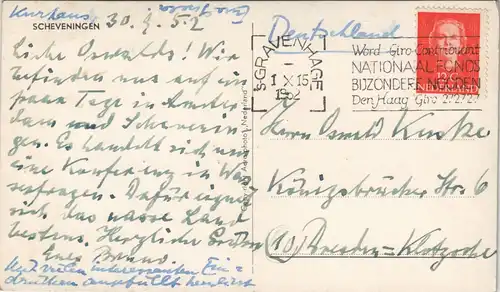 Kurhaus 30.9.52
SCHEVENINGEN
Liebe Oswalds! Wir
befinden uns auf ein
paar Tage in Amster
dam und Schevenin
gen. Es handelt sich um
eine Konferenz in Was
serfragen. Dafür eignet
sich das nasse Land
bestens. Herzliche Grüsse
Euer Bruno.
Mit vielen interessanten Ein=
drücken ausgefüllt
Deutschland
'S-GRAVENHAGE
1 X 15
1952
Word Giro-Contribuant
NATIONAAL FONDS
BIJZONDERE NODEN
Den Haag Giro 212727
NEDERLAND
Herrn Oswald
Königsbrücker Str. 6
(10) Dresden-Klotzsche
Nederland